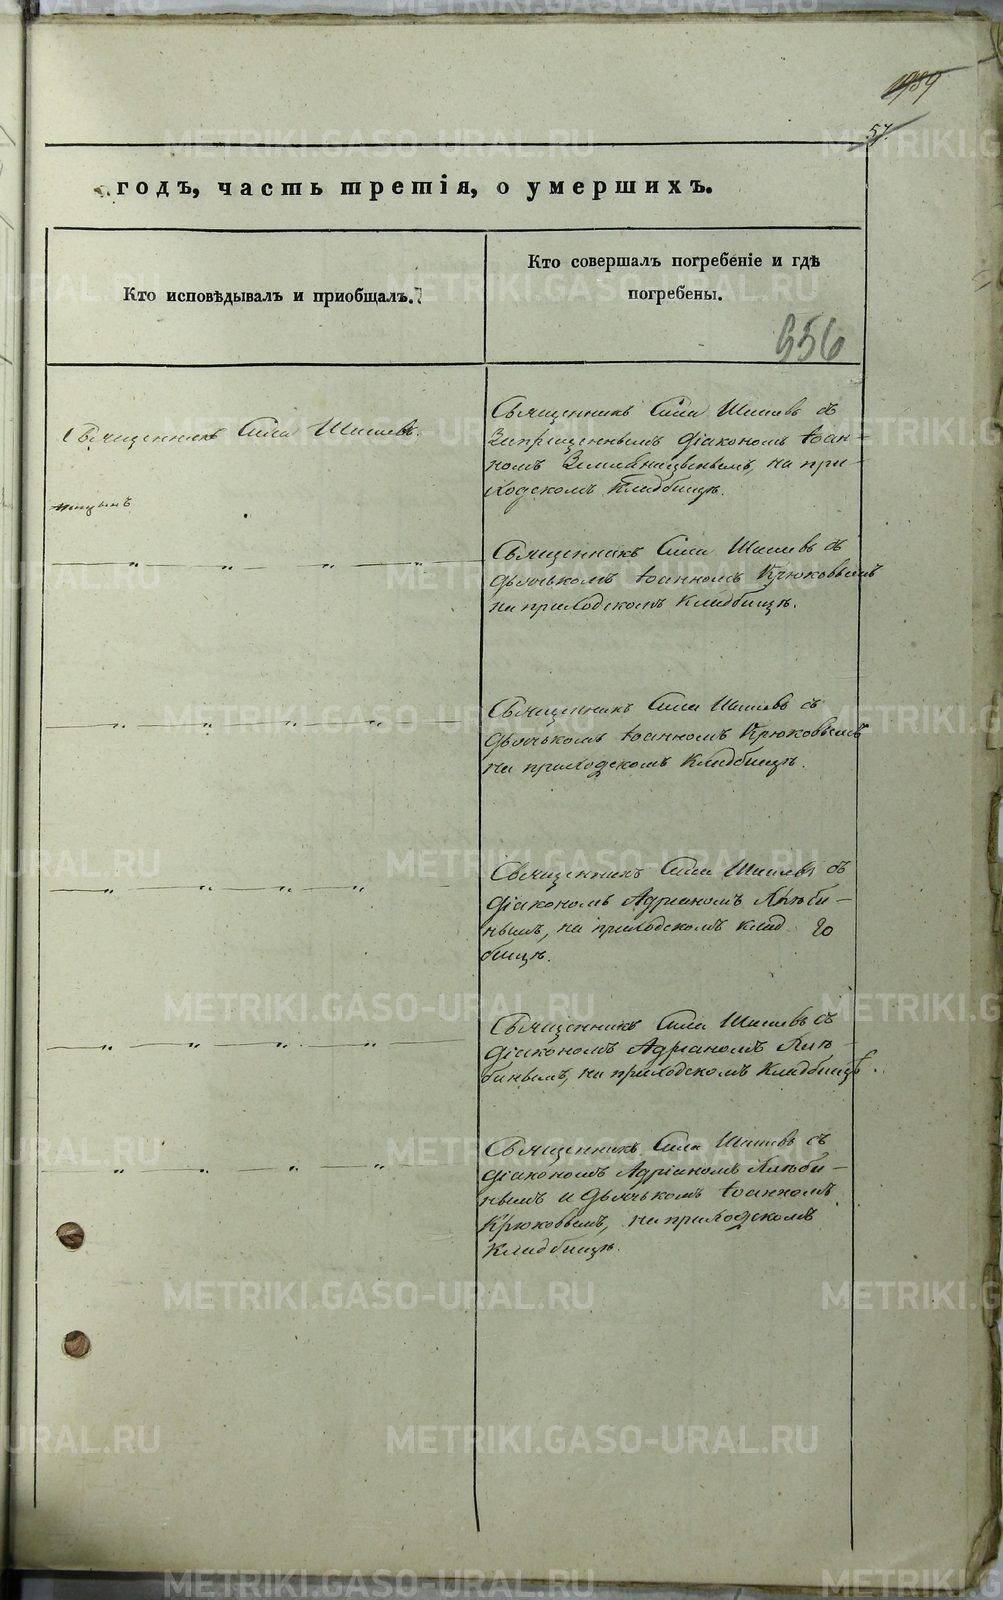 1989
57.
годъ, часть третія, о умершихъ.
Кто исповѣдывалъ и приобщалъ.
Кто совершалъ погребеніе и гдѣ
погребены.
956
Священникъ Сила Шишевъ.
Священникъ Сила Шишевъ съ
Запрещеннымъ Діакономъ Іоан-
номъ на при-
ходскомъ Кладбищѣ.
Священникъ Сила Шишевъ съ
Дьячькомъ Іоанномъ Крюковымъ
на приходскомъ Кладбищѣ.
Священникъ Сила Шишевъ съ
Дьячькомъ Іоанномъ Крюковымъ
на приходскомъ Кладбищѣ.
Священникъ Сила Шишевъ съ
Діакономъ Адрианомъ Ляпи-
нымъ, на приходскомъ клад
бищѣ.
Священникъ Сила Шишевъ съ
Діакономъ Адрианомъ
на приходскомъ Кладбищѣ.
Священникъ Сила Шишевъ съ
Діакономъ Адріаномъ
нымъ и Дьячькомъ Іоанномъ
Крюковымъ, на приходскомъ
Кладбищѣ.
METRIKI.GASO-URAL.RU